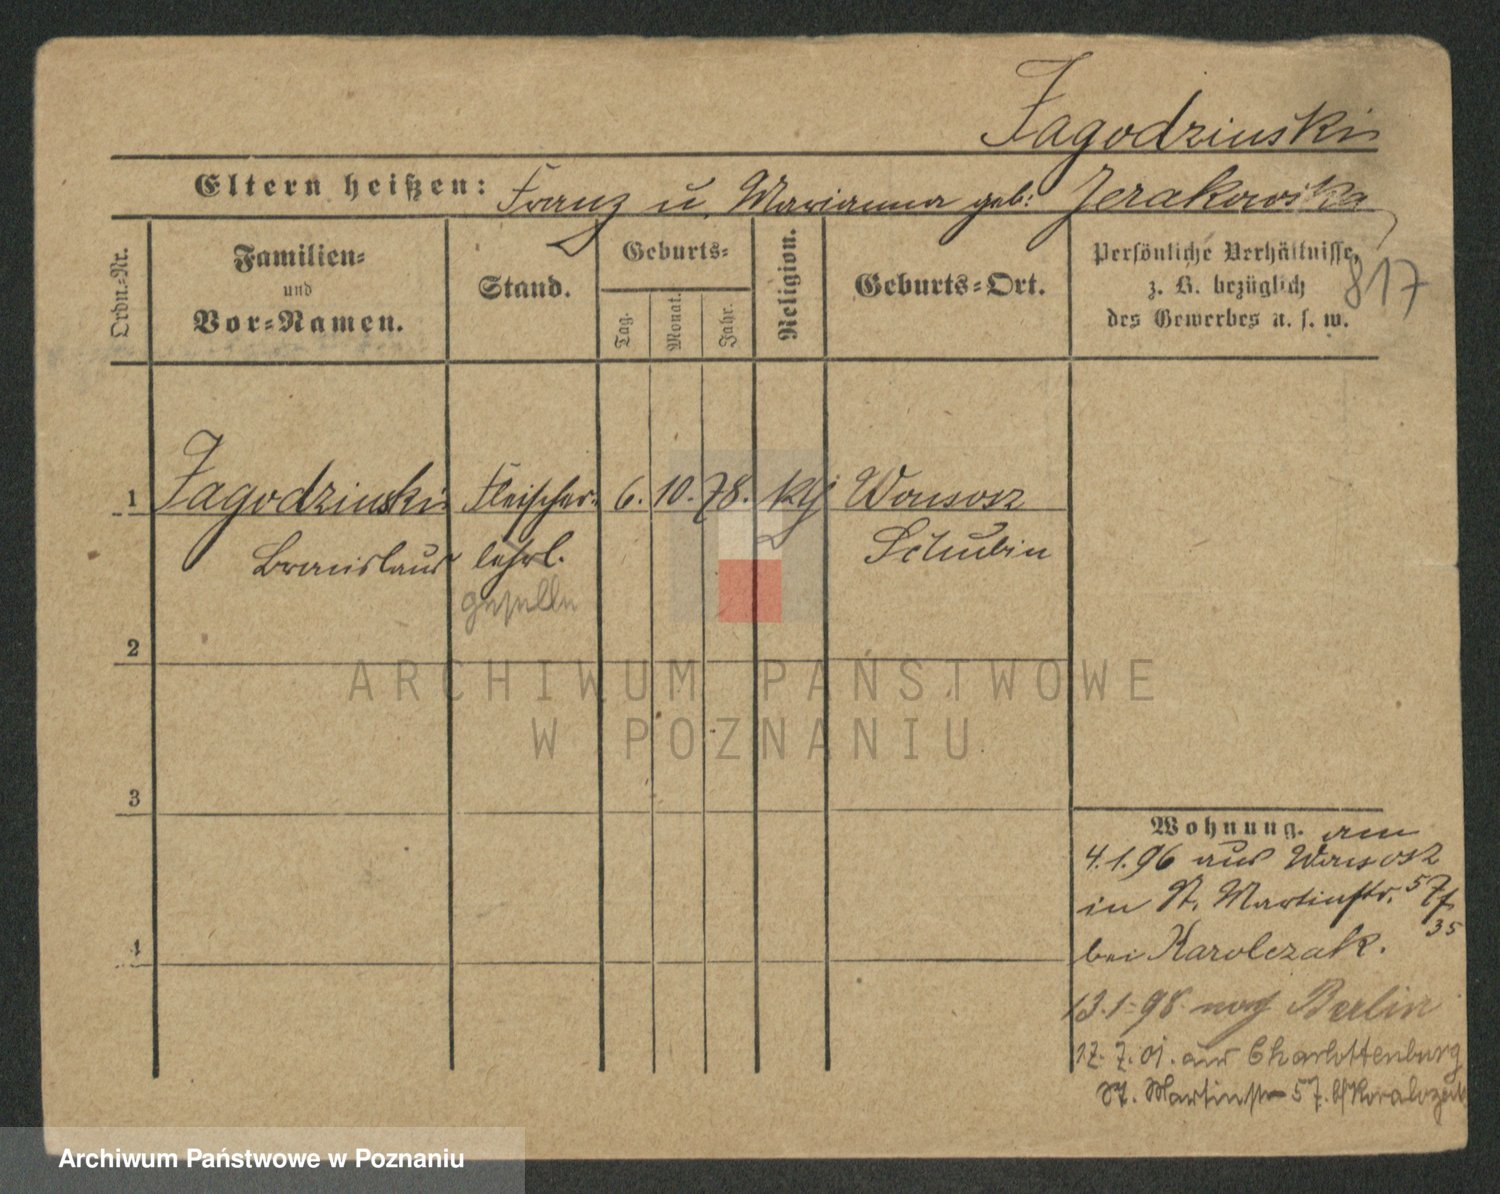 Jagodzinski
Eltern heißen: Franz u. Marianna geb: Jerakowska
Ordn.-Nr.
Familien-
und
Vor-Namen.
Stand.
Geburts-
Tag.
Monat.
Jahr.
Religion.
Geburts-Ort.
Persönliche Verhältnisse,
z. B. bezüglich
des Gewerbes u. s. w.
817
1 Jagodzinski Fleischer- 6. 10. 78. kth Wonsosz
Bronislaus lehrl. Schubin
geselle
2
3
4
Wohnung. am
4.1.96 aus Wonsosz
in St. Martinstr. 57
35
bei Karolczak.
13.1.98 nach Berlin
12.7.01. aus Charlottenburg
St. Martinstr 57. b/
ARCHIWUM PAŃSTWOWE
W POZNANIU
Archiwum Państwowe w Poznaniu